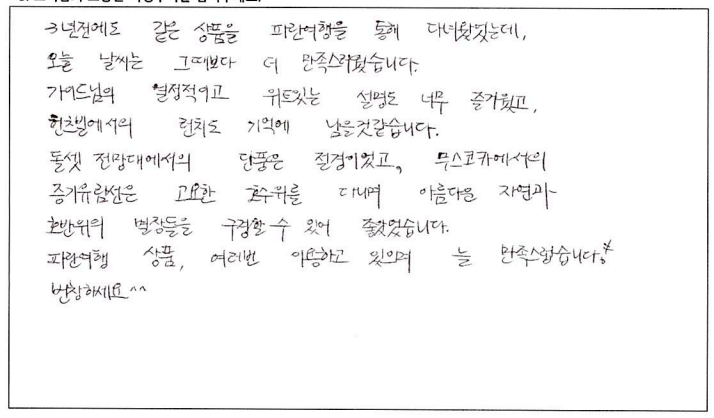 3년전에도 같은 상품을 파란여행을 통해 다녀왔었는데,
오늘 날씨는 그때보다 더 만족스러웠습니다.
가이드님의 열정적이고 위트있는 설명도 너무 즐거웠고,
헌츠빌에서의 런치도 기억에 남을것같습니다.
돌셋 전망대에서의 단풍은 절경이었고, 무스코카에서의
증기유람선은 고요한 호수위를 다니며 아름다운 자연과
호반위의 별장들을 구경할 수 있어 좋았었습니다.
파란여행 상품, 여러번 이용하고 있으며 늘 만족스럽습니다.*
번창하세요^^